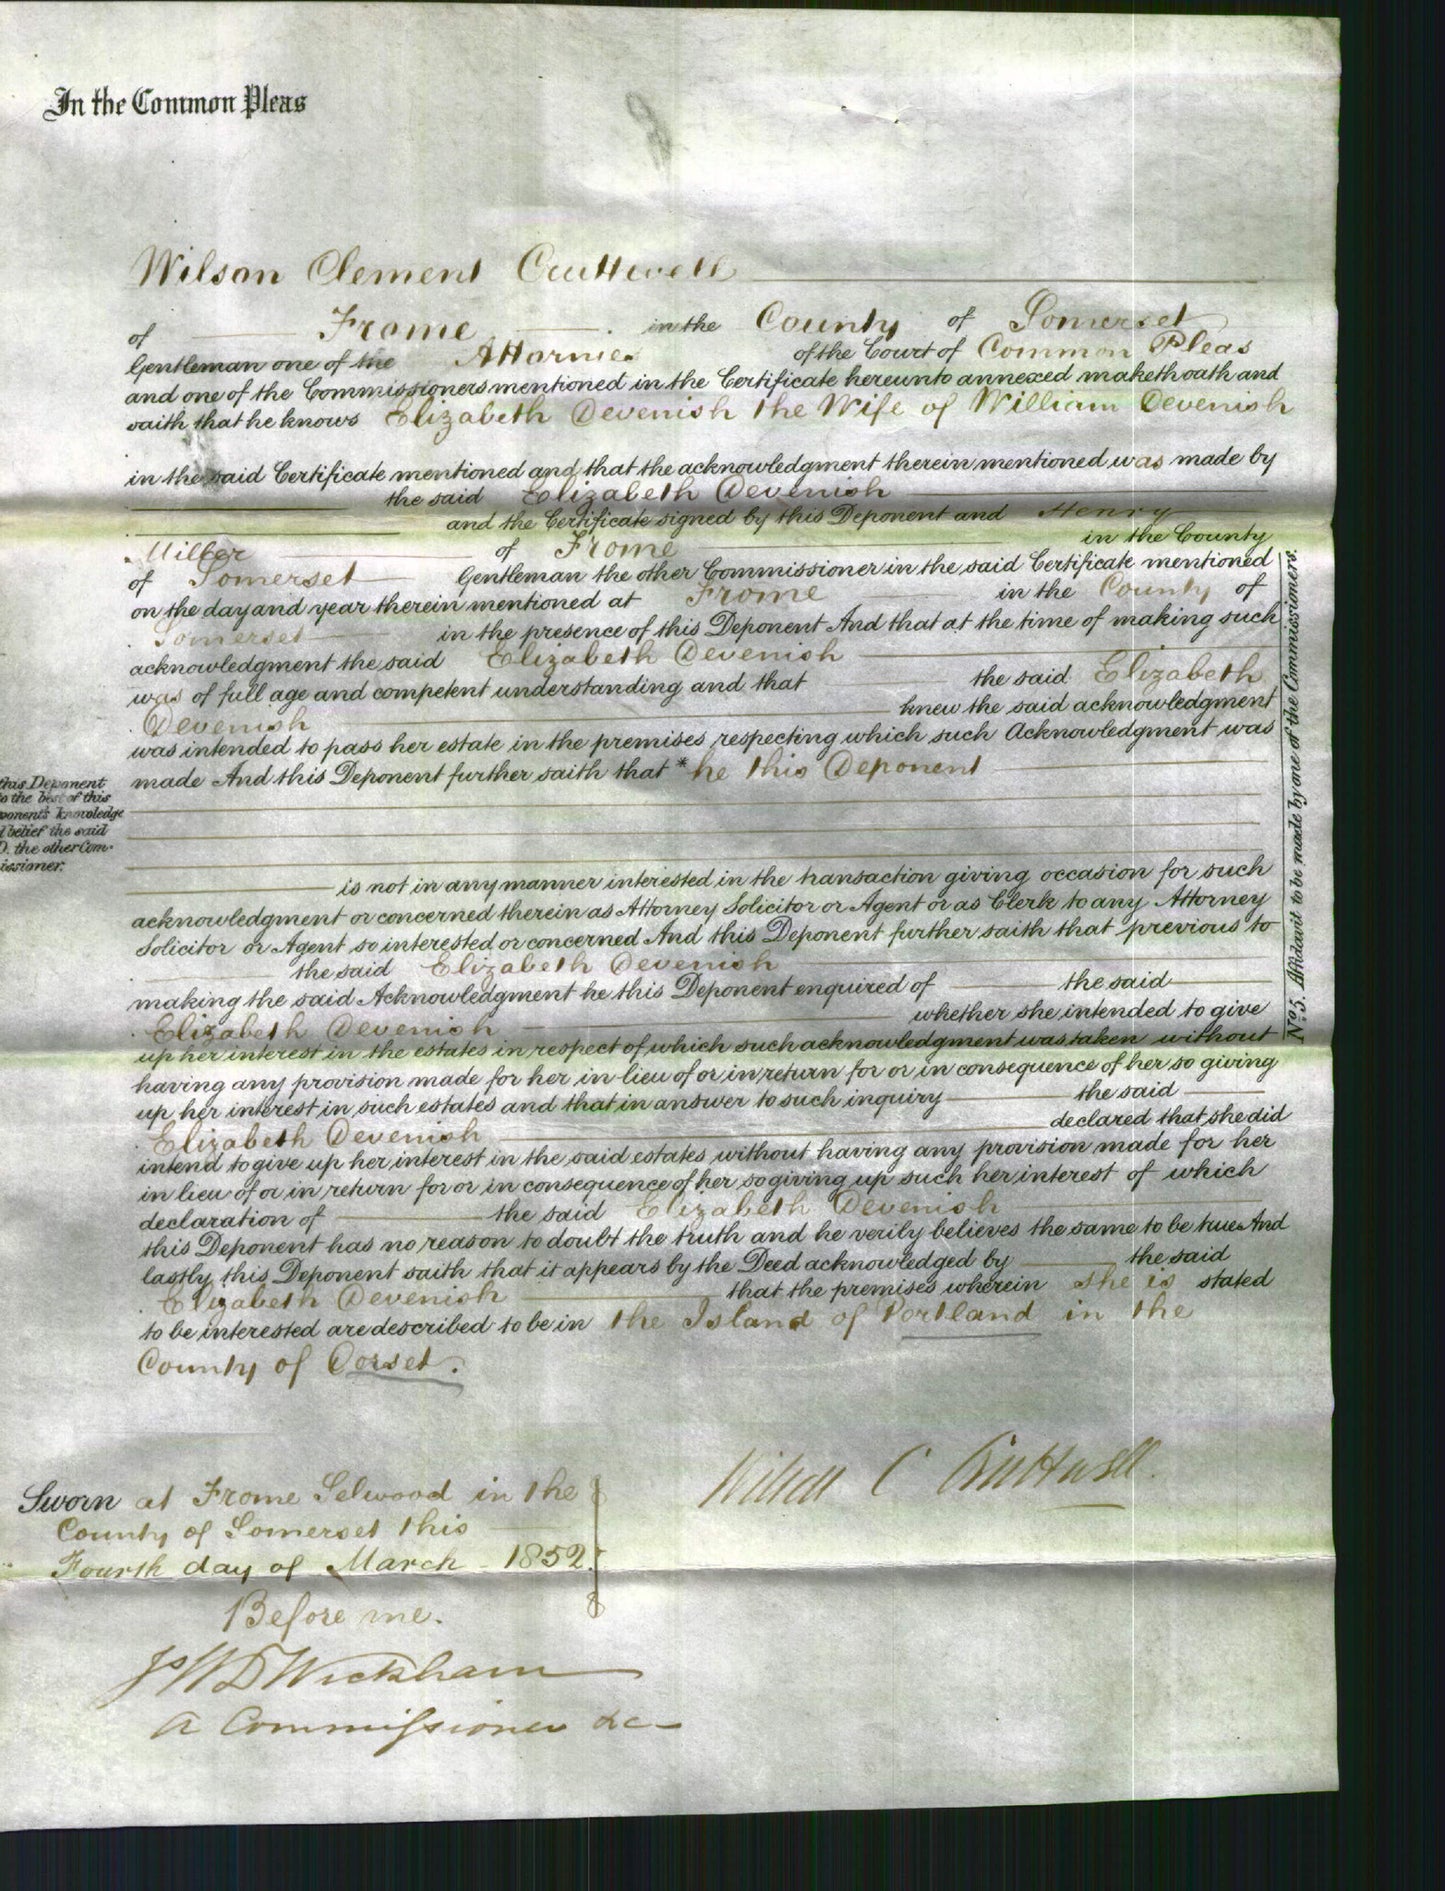 In the Common Pleas
Wilson Clement Cruttwell
of Frome in the County of Somerset
Gentleman one of the Attornies of the Court of Common Pleas
and one of the Commissioners mentioned in the Certificate hereunto annexed maketh oath and
saith that he knows Elizabeth Devenish the Wife of William Devenish
in the said Certificate mentioned and that the acknowledgment therein mentioned was made by
the said Elizabeth Devenish
and the Certificate signed by this Deponent and Henry
Miller of Frome in the County
of Somerset Gentleman the other Commissioner in the said Certificate mentioned
on the day and year therein mentioned at Frome in the County of
Somerset in the presence of this Deponent And that at the time of making such
acknowledgment the said Elizabeth Devenish
was of full age and competent understanding and that the said Elizabeth
Devenish knew the said acknowledgment
was intended to pass her estate in the premises respecting which such Acknowledgment was
made And this Deponent further saith that * he this Deponent
this Deponent
to the best of this
ponent's knowledge
d belief the said
D. the other Com-
issioner.
is not in any manner interested in the transaction giving occasion for such
acknowledgment or concerned therein as Attorney Solicitor or Agent or as Clerk to any Attorney
Solicitor or Agent so interested or concerned And this Deponent further saith that previous to
the said Elizabeth Devenish
making the said Acknowledgment he this Deponent enquired of the said
Elizabeth Devenish whether she intended to give
up her interest in the estates in respect of which such acknowledgment was taken without
having any provision made for her in lieu of or in return for or in consequence of her so giving
up her interest in such estates and that in answer to such inquiry the said
Elizabeth Devenish declared that she did
intend to give up her interest in the said estates without having any provision made for her
in lieu of or in return for or in consequence of her so giving up such her interest of which
declaration of the said Elizabeth Devenish
this Deponent has no reason to doubt the truth and he verily believes the same to be true And
lastly this Deponent saith that it appears by the Deed acknowledged by the said
Elizabeth Devenish that the premises wherein she is stated
to be interested are described to be in the Island of Portland in the
County of Dorset.
No. 5. Affidavit to be made by one of the Commissioners.
Wilson C Cruttwell.
Sworn at Frome Selwood in the
County of Somerset this
Fourth day of March 1852.
Before me.
Jas W D Wickham
A Commissioner &c